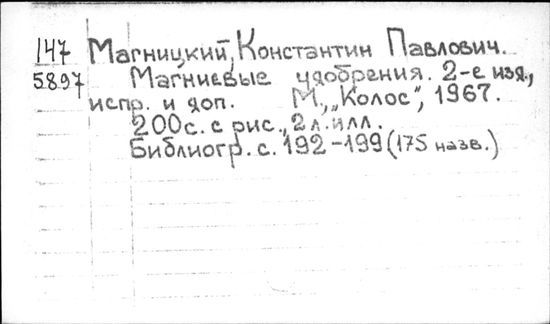 147 Магницкий, Константин Павлович.
5897 Магниевые удобрения. 2-е изд.,
испр. и доп. М., „Колос", 1967.
200с. с рис., 2 л. илл.
Библиогр. с. 192-199 (175 назв.)